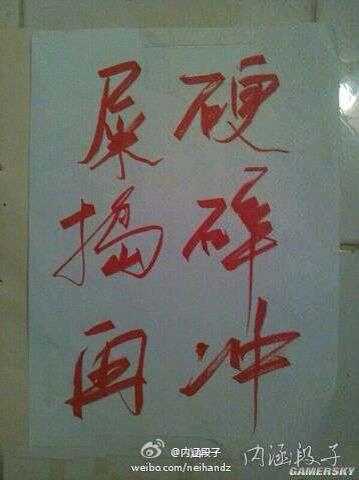 屎硬
捣碎
再冲
@内涵段子
weibo.com/neihandz
内涵段子
GAMERSKY